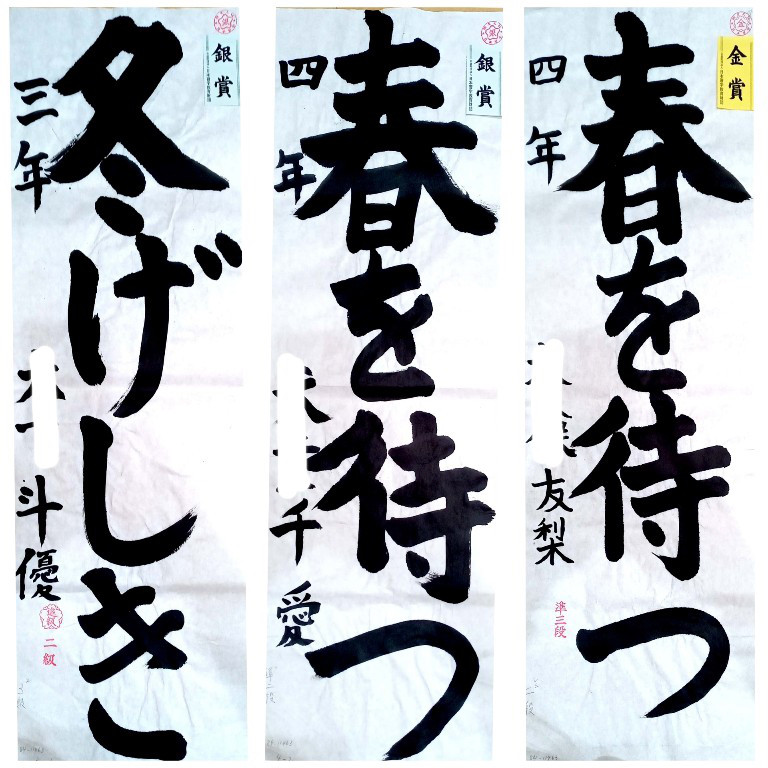 銀賞
冬げしき
三年
斗優
二級
銀賞
春を待つ
四年
千愛
準三段
金賞
春を待つ
四年
友梨
準三段